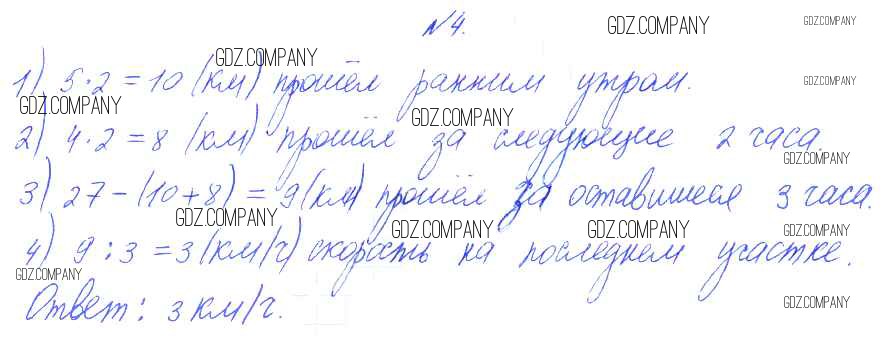 №4. GDZ.COMPANY GDZ.COMPANY
GDZ.COMPANY
1) 5·2=10 (км) прошёл ранним утром. GDZ.COMPANY
GDZ.COMPANY GDZ.COMPANY
2) 4·2=8 (км) прошёл за следующие 2 часа.
GDZ.COMPANY
3) 27-(10+8)=9(км) прошёл за оставшиеся 3 часа.
GDZ.COMPANY GDZ.COMPANY GDZ.COMPANY GDZ.COMPANY
4) 9:3=3(км/ч) скорость на последнем участке.
GDZ.COMPANY
Ответ: 3 км/ч. GDZ.COMPANY
GDZ.COMPANY